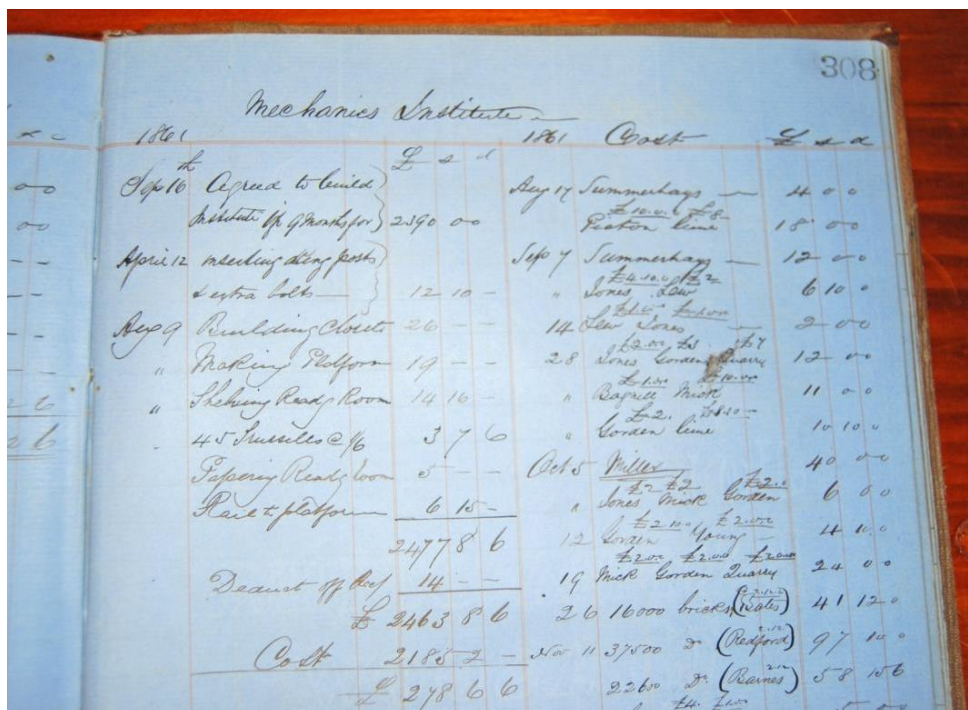 308
Mechanics Institute
1861
£ s d
Sep 16th Agreed to build
Institute 2390 00
April 12 inserting posts
& extra bolts 12 10 -
Aug 9 Building Closets 26 - -
" Making Platform 19 - -
" Shelving Readg Room 14 16 -
45 Trussells @ 1/6 3 7 6
Papering Readg room 5 - -
Rail to platform 6 15 -
2477 8 6
Deduct off Roof 14 - -
£ 2463 8 6
Cost 2185 2 -
£ 278 6 6
1861 Cost £ s d
Aug 17 Summerhays 4 0 0
£10.0.0 £8
Picton lime 18 0 0
Sep 7 Summerhays 12 0 0
£4.10.0 £2
" Jones Lew 6 10 0
14 Lew Jones 2 0 0
£2.00 £3 £7
28 Jones Gorden Quarry 12 0 0
£1.00 £10.00
" Bagnell Mick 11 0 0
£2.
" Gorden lime 10 10 0
Oct 5 Miller 40 0 0
£2 £2 £2.0
" Jones Mick Gorden 6 0 0
£2.10 £2.00
12 Gorden Young 4 10 0
£2.00 £2.00 £20.00
19 Mick Gorden Quarry 24 0 0
26 16000 bricks (Bates) 41 12 0
Nov 11 37500 Do (Redford) 97 10 0
22600 Do (Barnes) 58 15 6